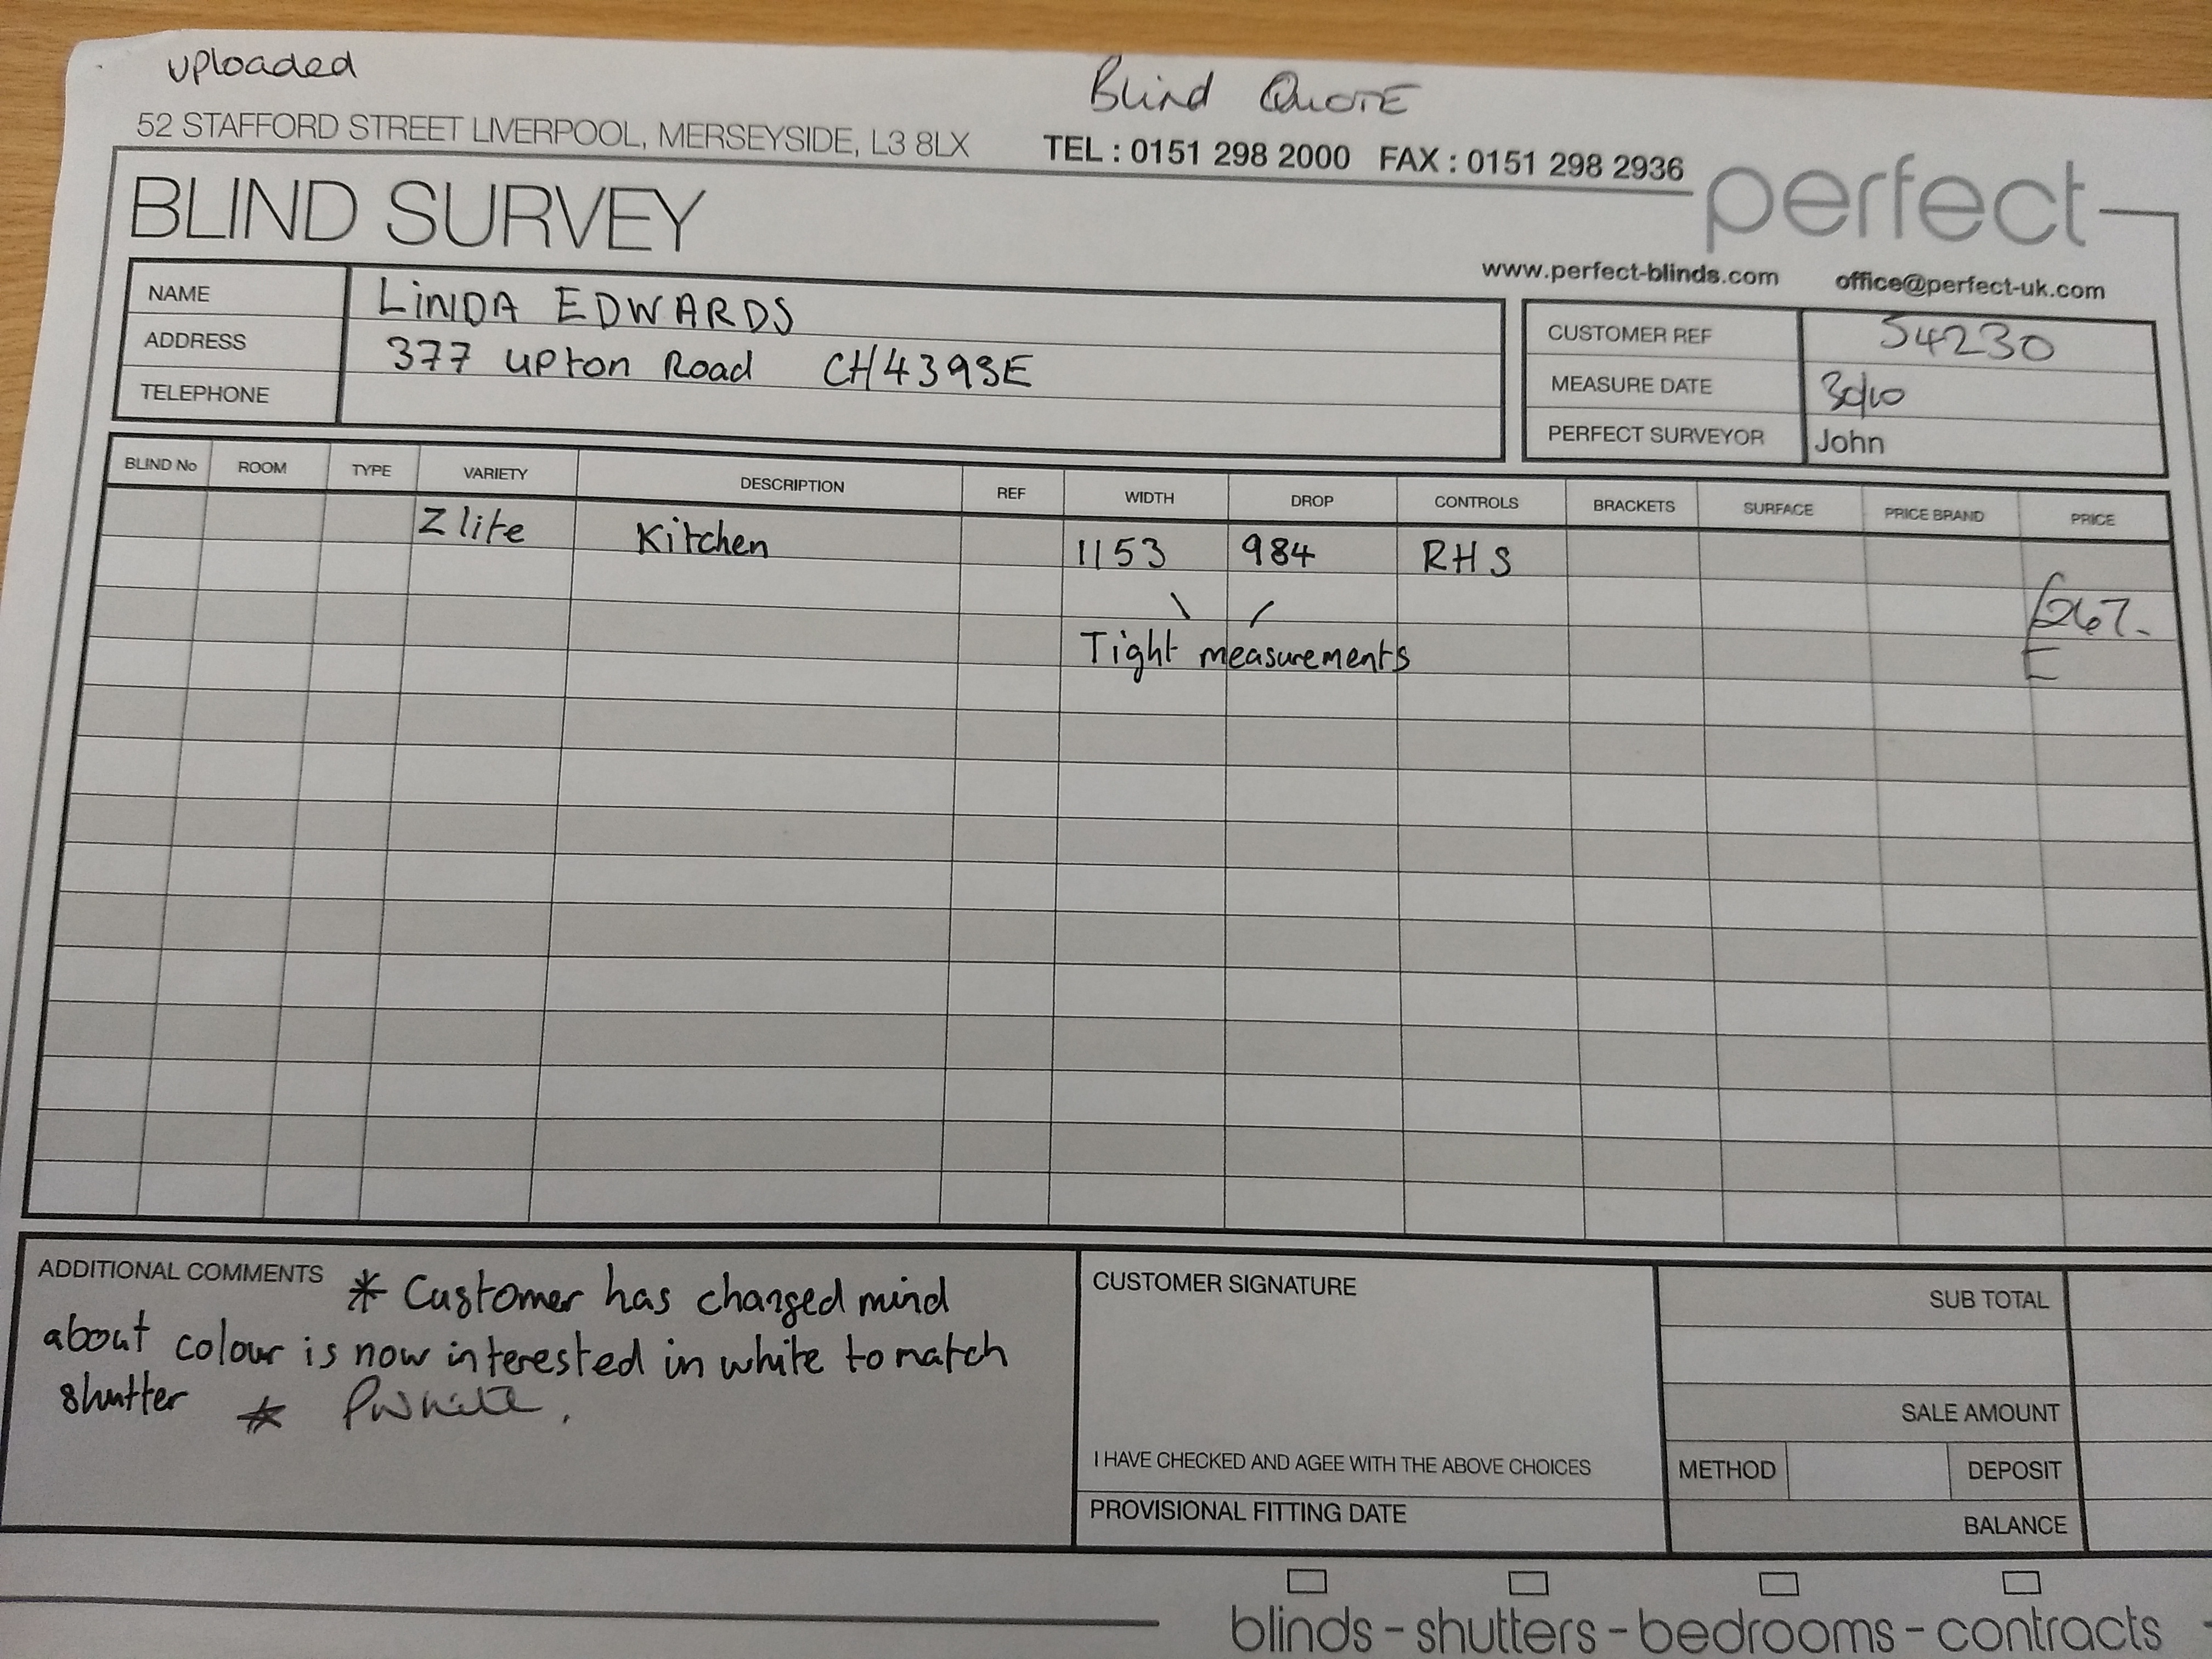 uploaded
Blind QUOTE
52 STAFFORD STREET LIVERPOOL, MERSEYSIDE, L3 8LX
TEL : 0151 298 2000 FAX : 0151 298 2936
BLIND SURVEY
perfect
www.perfect-blinds.com office@perfect-uk.com
NAME LINDA EDWARDS
ADDRESS 377 upton Road CH439SE
TELEPHONE
CUSTOMER REF 54230
MEASURE DATE 30/10
PERFECT SURVEYOR John
BLIND No ROOM TYPE VARIETY DESCRIPTION REF WIDTH DROP CONTROLS BRACKETS SURFACE PRICE BRAND PRICE
Z lite Kitchen 1153 984 RHS
£267.
Tight measurements
E
ADDITIONAL COMMENTS * Customer has changed mind
about colour is now interested in white to match
shutter *
CUSTOMER SIGNATURE
I HAVE CHECKED AND AGEE WITH THE ABOVE CHOICES
PROVISIONAL FITTING DATE
SUB TOTAL
SALE AMOUNT
METHOD DEPOSIT
BALANCE
blinds - shutters - bedrooms - contracts -